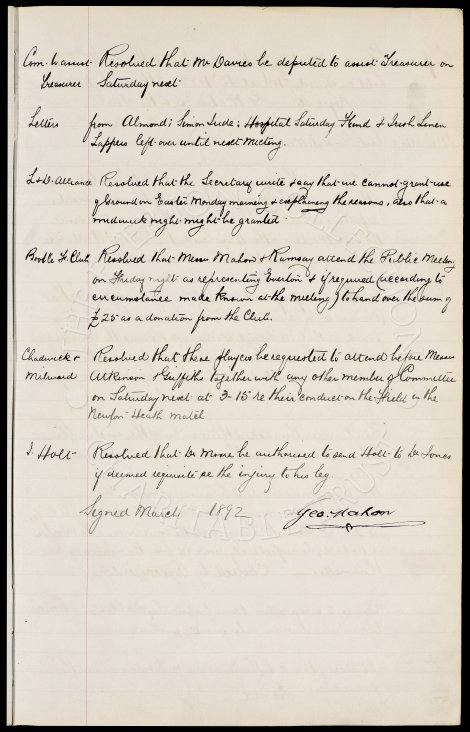 Com. to assist Resolved that Mr Davies be deputed to assist Treasurer on
Treasurer Saturday next
Letters from Almond; Simon Jude; Hospital Saturday Fund & Irish Linen
Lappers left over until next meeting.
L & D. Alliance Resolved that the Secretary write & say that we cannot grant use
of Ground on Easter Monday morning & explaining the reasons, also that a
midweek night might be granted.
Bootle F. Club Resolved that Messrs Mahon & Ramsay attend the Public Meeting
on Friday night as representing Everton & if required (according to
circumstance made known at the meeting) to hand over the sum of
£25 as a donation from the Club.
Chadwick & Resolved that these players be requested to attend before Messrs
Milward Atkinson & Griffiths together with any other member of Committee
on Saturday next at 3-15 re their conduct on the Field in the
Newton Heath match
J. Holt Resolved that Dr Moore be authorised to send Holt to Dr Jones
if deemed requisite re the injury to his leg.
Signed March 1892 Geo. Mahon